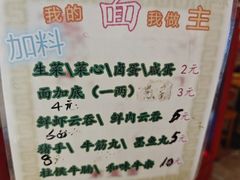 我的面我做主
加料
生菜\菜心\卤蛋\咸蛋 2元
面加底（一两） 3元
4元
鲜虾云吞\鲜肉云吞 5元
6元
猪手\牛筋丸\墨鱼丸 5元
8
柱候牛腩\和味牛杂 10元